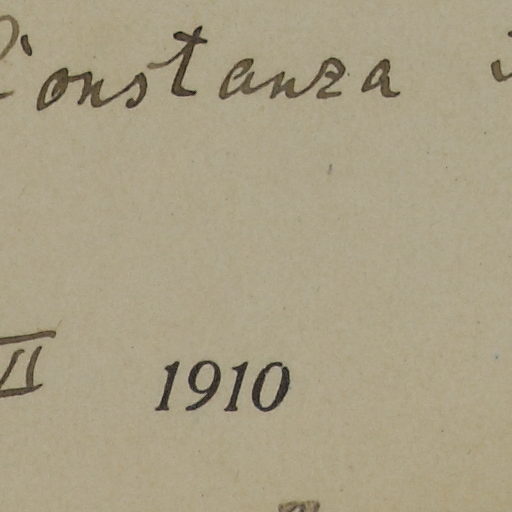 Constanza
II 1910